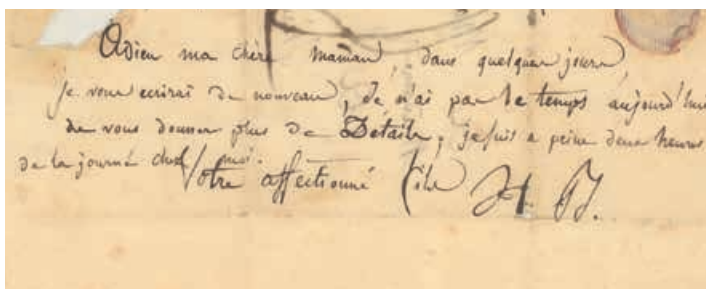 Adieu ma chère maman, dans quelques jours
je vous ecrirai de nouveau, Je n'ai pas le temps aujourd'hui
de vous donner plus de Détails, je suis a peine deux heures
de la journé chez moi.
Votre affectionné fils H. B.